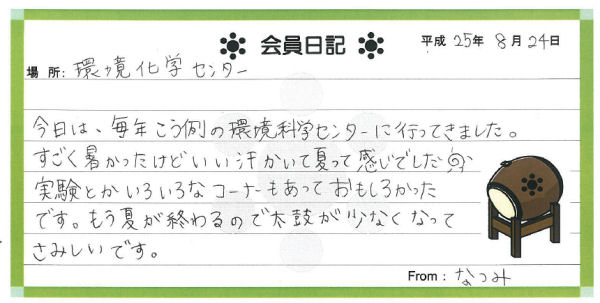 会員日記
平成 25年 8月 24日
場所: 環境化学センター
今日は、毎年こう例の環境科学センターに行ってきました。
すごく暑かったけどいい汗かいて夏って感じでした
実験とかいろいろなコーナーもあっておもしろかった
です。もう夏が終わるので太鼓が少なくなって
さみしいです。
From: なつみ